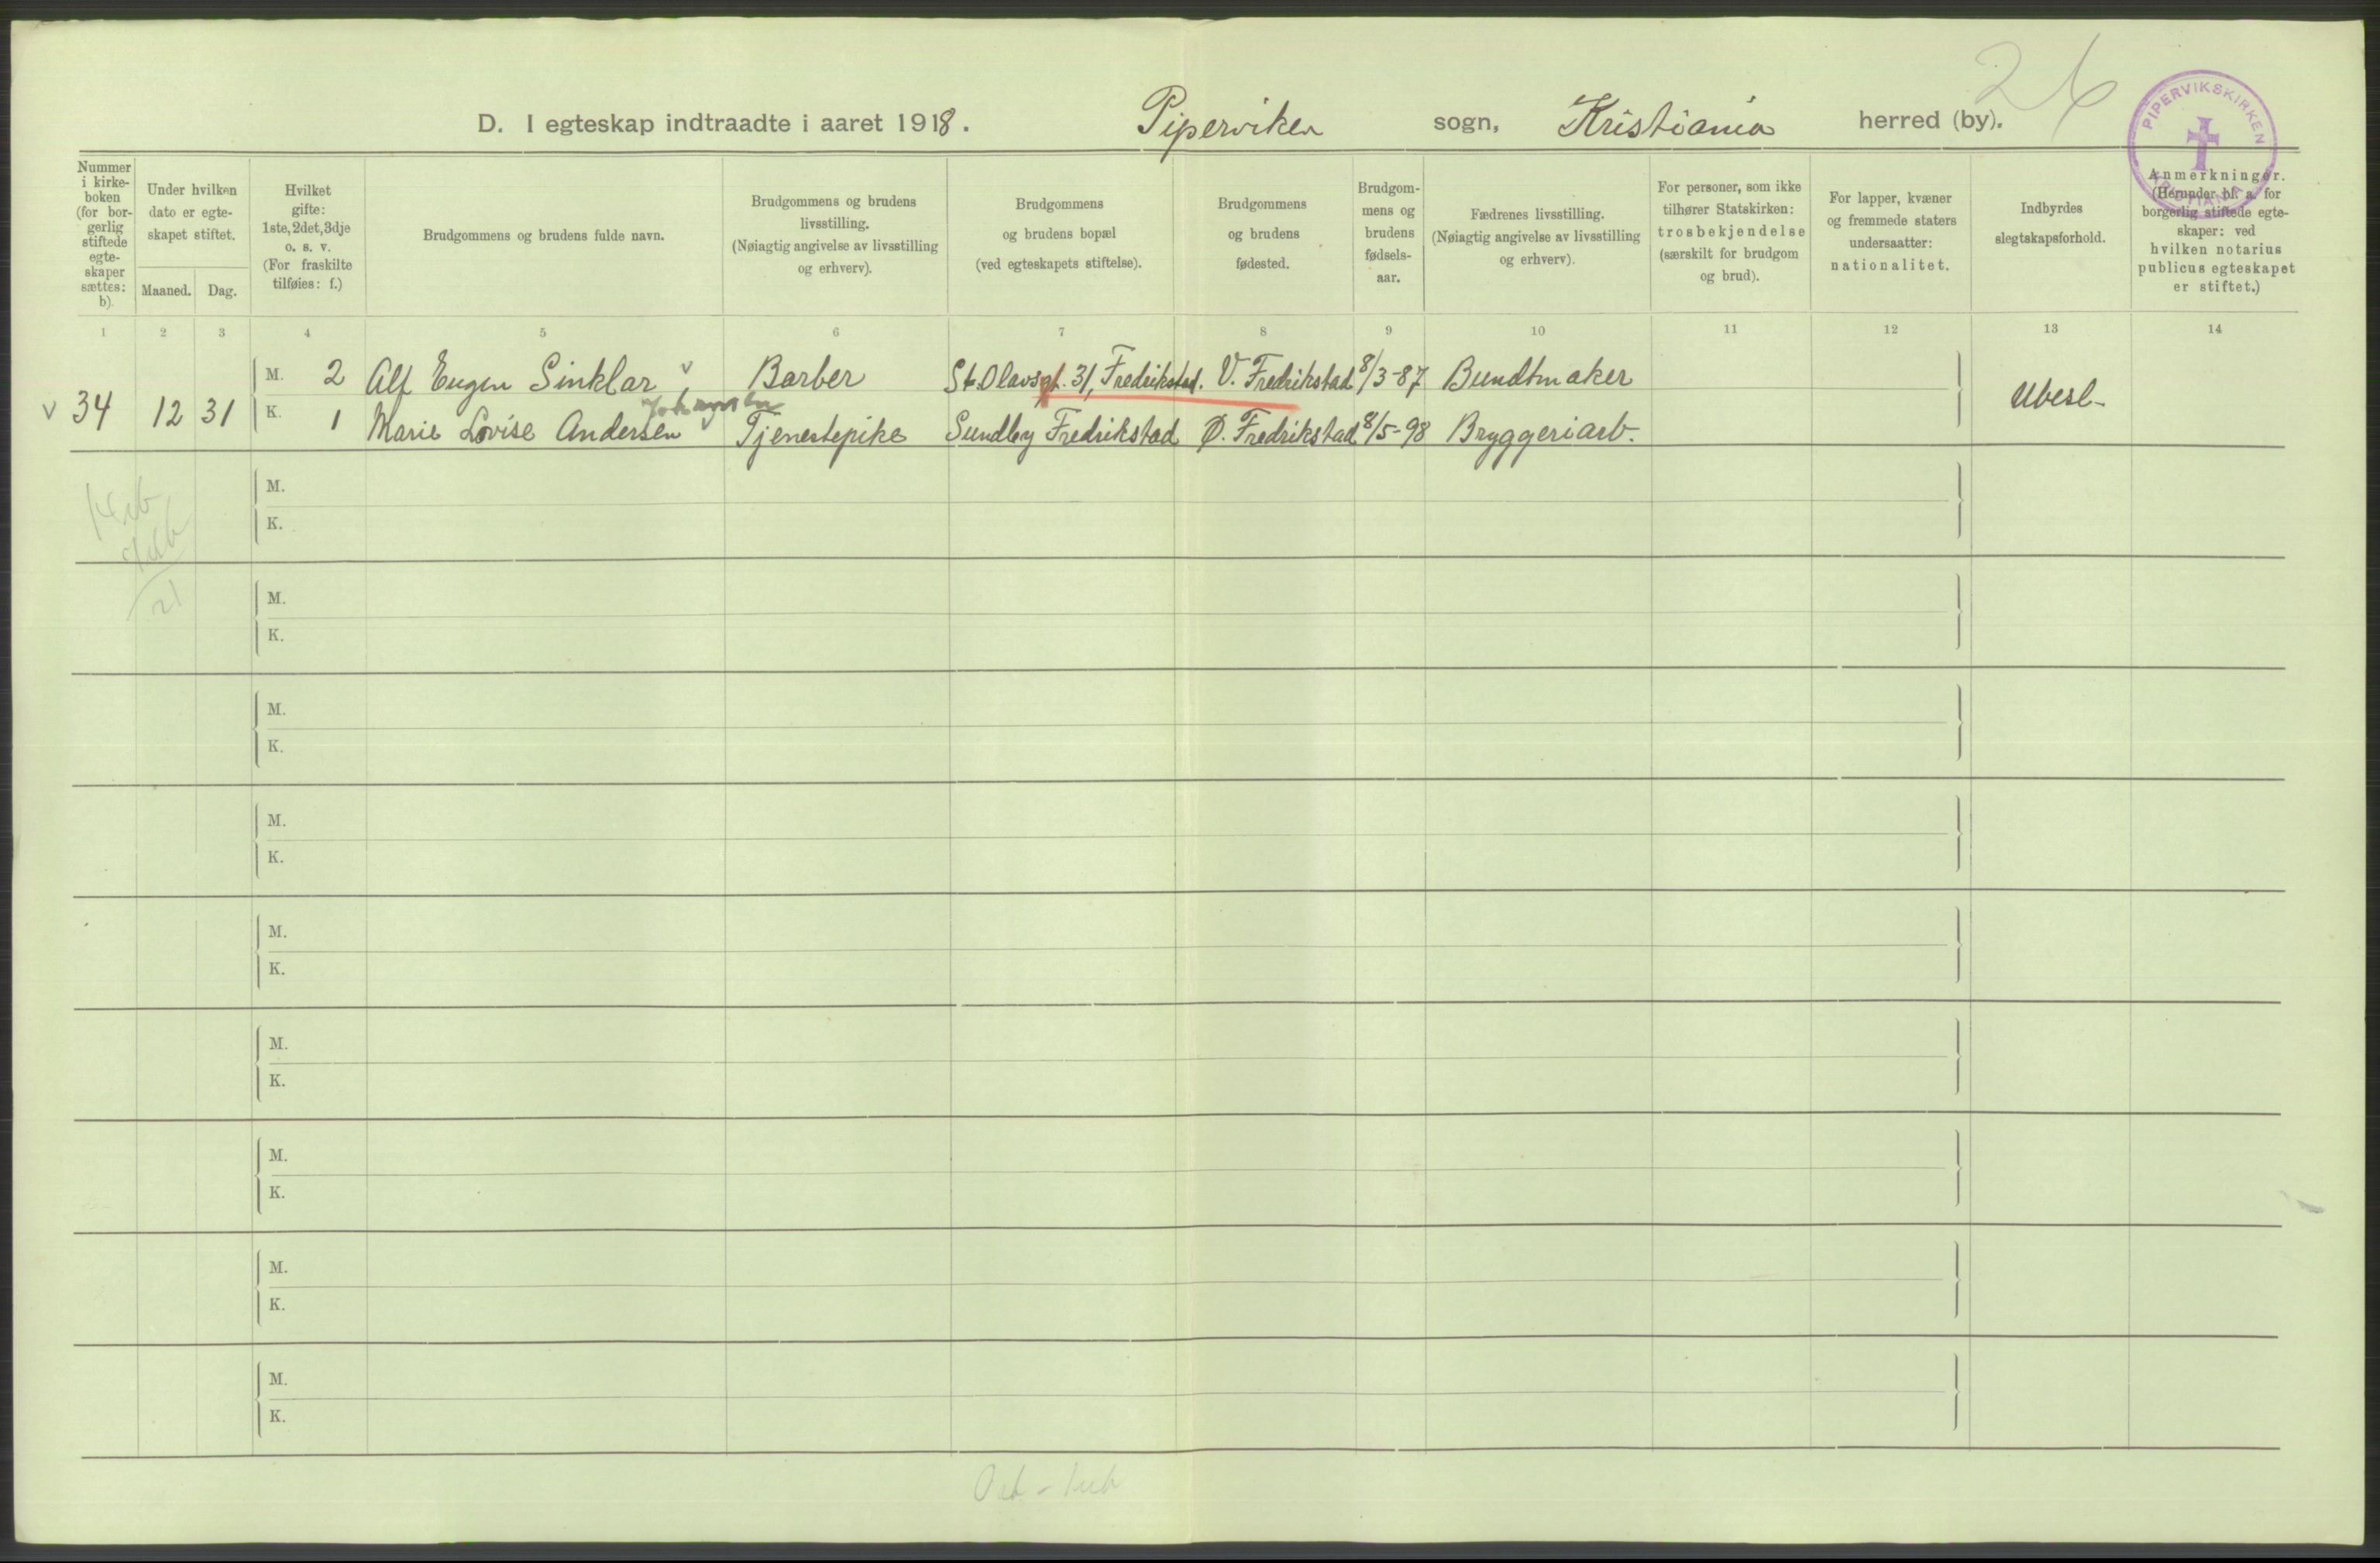 26
D. I egteskap indtraadte i aaret 1918. Piperviken sogn, Kristiania herred (by).
PIPERVIKSKIRKEN KRISTIANIA
Nummer i kirke-boken (for bor-gerlig stiftede egte-skaper sættes: b).
Under hvilken dato er egte-skapet stiftet.
Maaned. Dag.
Hvilket gifte: 1ste, 2det, 3dje o. s. v. (For fraskilte tilføies: f.)
Brudgommens og brudens fulde navn.
Brudgommens og brudens livsstilling. (Nøiagtig angivelse av livsstilling og erhverv).
Brudgommens og brudens bopæl (ved egteskapets stiftelse).
Brudgommens og brudens fødested.
Brudgom-mens og brudens fødsels-aar.
Fædrenes livsstilling. (Nøiagtig angivelse av livsstilling og erhverv).
For personer, som ikke tilhører Statskirken: trosbekjendelse (særskilt for brudgom og brud).
For lapper, kvæner og fremmede staters undersaatter: nationalitet.
Indbyrdes slegtskapsforhold.
Anmerkninger. (Herunder bl. a. for borgerlig stiftede egte-skaper: ved hvilken notarius publicus egteskapet er stiftet.)
1 2 3 4 5 6 7 8 9 10 11 12 13 14
M. 2 Alf Eugen Sinklar v Barber St. Olavsgt. 31, Fredrikstad. V. Fredrikstad 8/3-87 Bundtmaker
v 34 12 31 Ubesl-
K. 1 Marie Lovise Andersen v Tjenestepike Sundby Fredrikstad Ø. Fredrikstad 8/5-98 Bryggeriarb.
M.
K.
M.
K.
21
M.
K.
M.
K.
M.
K.
M.
K.
M.
K.
M.
K.
M.
K.